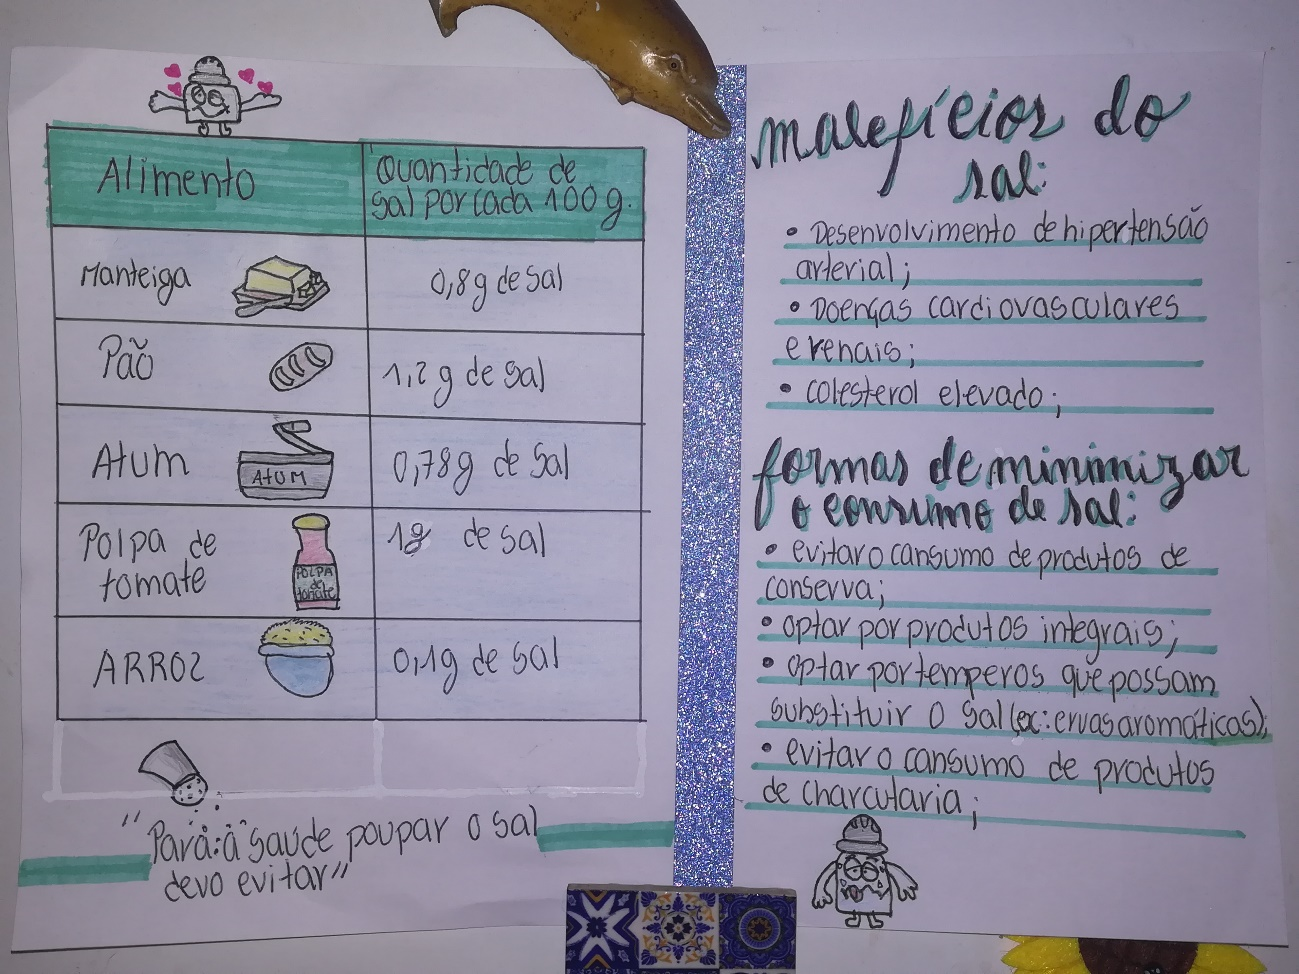 Alimento
Quantidade de
sal por cada 100g.
Manteiga
0,8g de sal
Pão
1,2g de sal
Atum
ATUM
0,78g de sal
Polpa de
tomate
POLPA
de
tomate
1g de sal
ARROZ
0,1g de sal
"Para a saúde poupar o sal
devo evitar"
malefícios do
sal:
• Desenvolvimento de hipertensão
arterial;
• Doenças cardiovasculares
e renais;
• colesterol elevado;
formas de minimizar
o consumo de sal:
• evitar o cansumo de produtos de
conserva;
• optar por produtos integrais;
• optar por temperos que possam
substituir o sal (ex: ervas aromáticas);
• evitar o cansumo de produtos
de charcutaria;